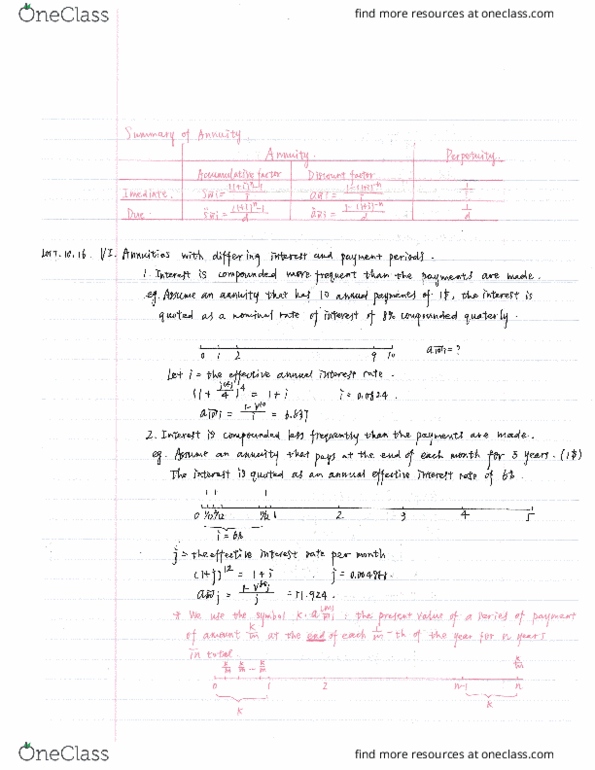 OneClass
find more resources at oneclass.com
Summary of Annuity.
Annuity. Perpetuity.
Accumulative factor Discount factor
Imediate. s_n̅|i = ((1+i)^n-1)/i a_n̅|i = (1-(1+i)^-n)/i 1/i
Due. s̈_n̅|i = ((1+i)^n-1)/d ä_n̅|i = (1-(1+i)^-n)/d 1/d
2017.10.16. VI. Annuities with differing interest and payment periods.
1. Interest is compounded more frequent than the payments are made.
eg. Assume an annuity that has 10 annual payments of 1$, the interest is
quoted as a nominal rate of interest of 8% compounded quaterly.
0 1 2 9 10 a_10̅|i = ?
Let i = the effective annual interest rate.
(1+ /4)^4 = 1+i i = 0.0824.
a_10̅|i = (1-v^10)/i = 6.637
2. Interest is compounded less frequently than the payments are made.
eg. Assume an annuity that pays at the end of each month for 5 years. (1$)
The interest is quoted as an annual effective interest rate of 6%.
0 1/12 2/12 1 2 3 4 5
i = 6%
j = the effective interest rate per month
(1+j)^12 = 1+i j =
a_60̅|j = (1-v^60)/j = 51.924.
* We use the symbol k·a_n̅|i^(m) : the present value of a series of payment
of amount k/m at the end of each 1/m -th of the year for n years
in total.
k/m k/m - k/m k/m
0 1 2 n-1 n
k k
OneClass
find more resources at oneclass.com